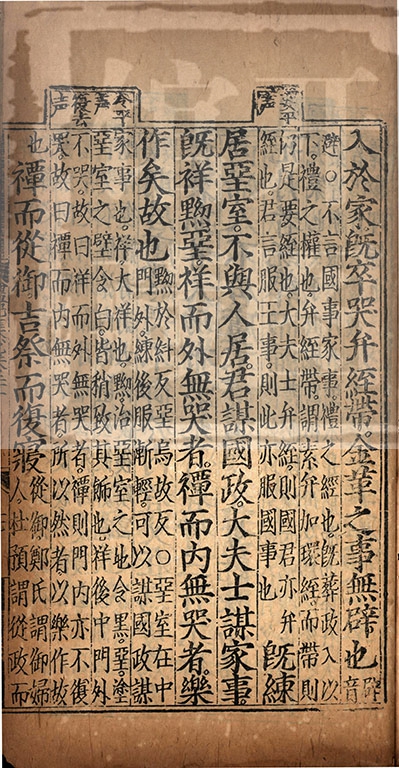 要平声
入於家既卒哭弁絰帶。金革之事無辟也辟音
避○不言國事家事。禮之經也。既葬政入以
下。禮之權也。弁絰帶。謂素弁加環絰。而帶則
仍是要絰也。大夫士弁絰。則國君亦弁
絰也。君言服王事。則此亦服國事也 既練
居堊室。不與人居。君謀國政。大夫士謀家事。
既祥黝堊。祥而外無哭者。禫而內無哭者。樂
作矣故也 黝於糾反。堊烏故反○堊室在中
門外。練後服漸輕。可以謀國政謀
令平声
復去声
家事也。祥大祥也。黝治堊室之地令黑。堊塗
堊室之壁令白。皆稍致其飾也。祥後中門外
不哭。故曰祥而外無哭者。禫則門內亦不復
哭。故曰禫而內無哭者。所以然者以樂作故
也 禫而從御。吉祭而復寢 從御鄭氏謂御婦
人杜預謂從政而